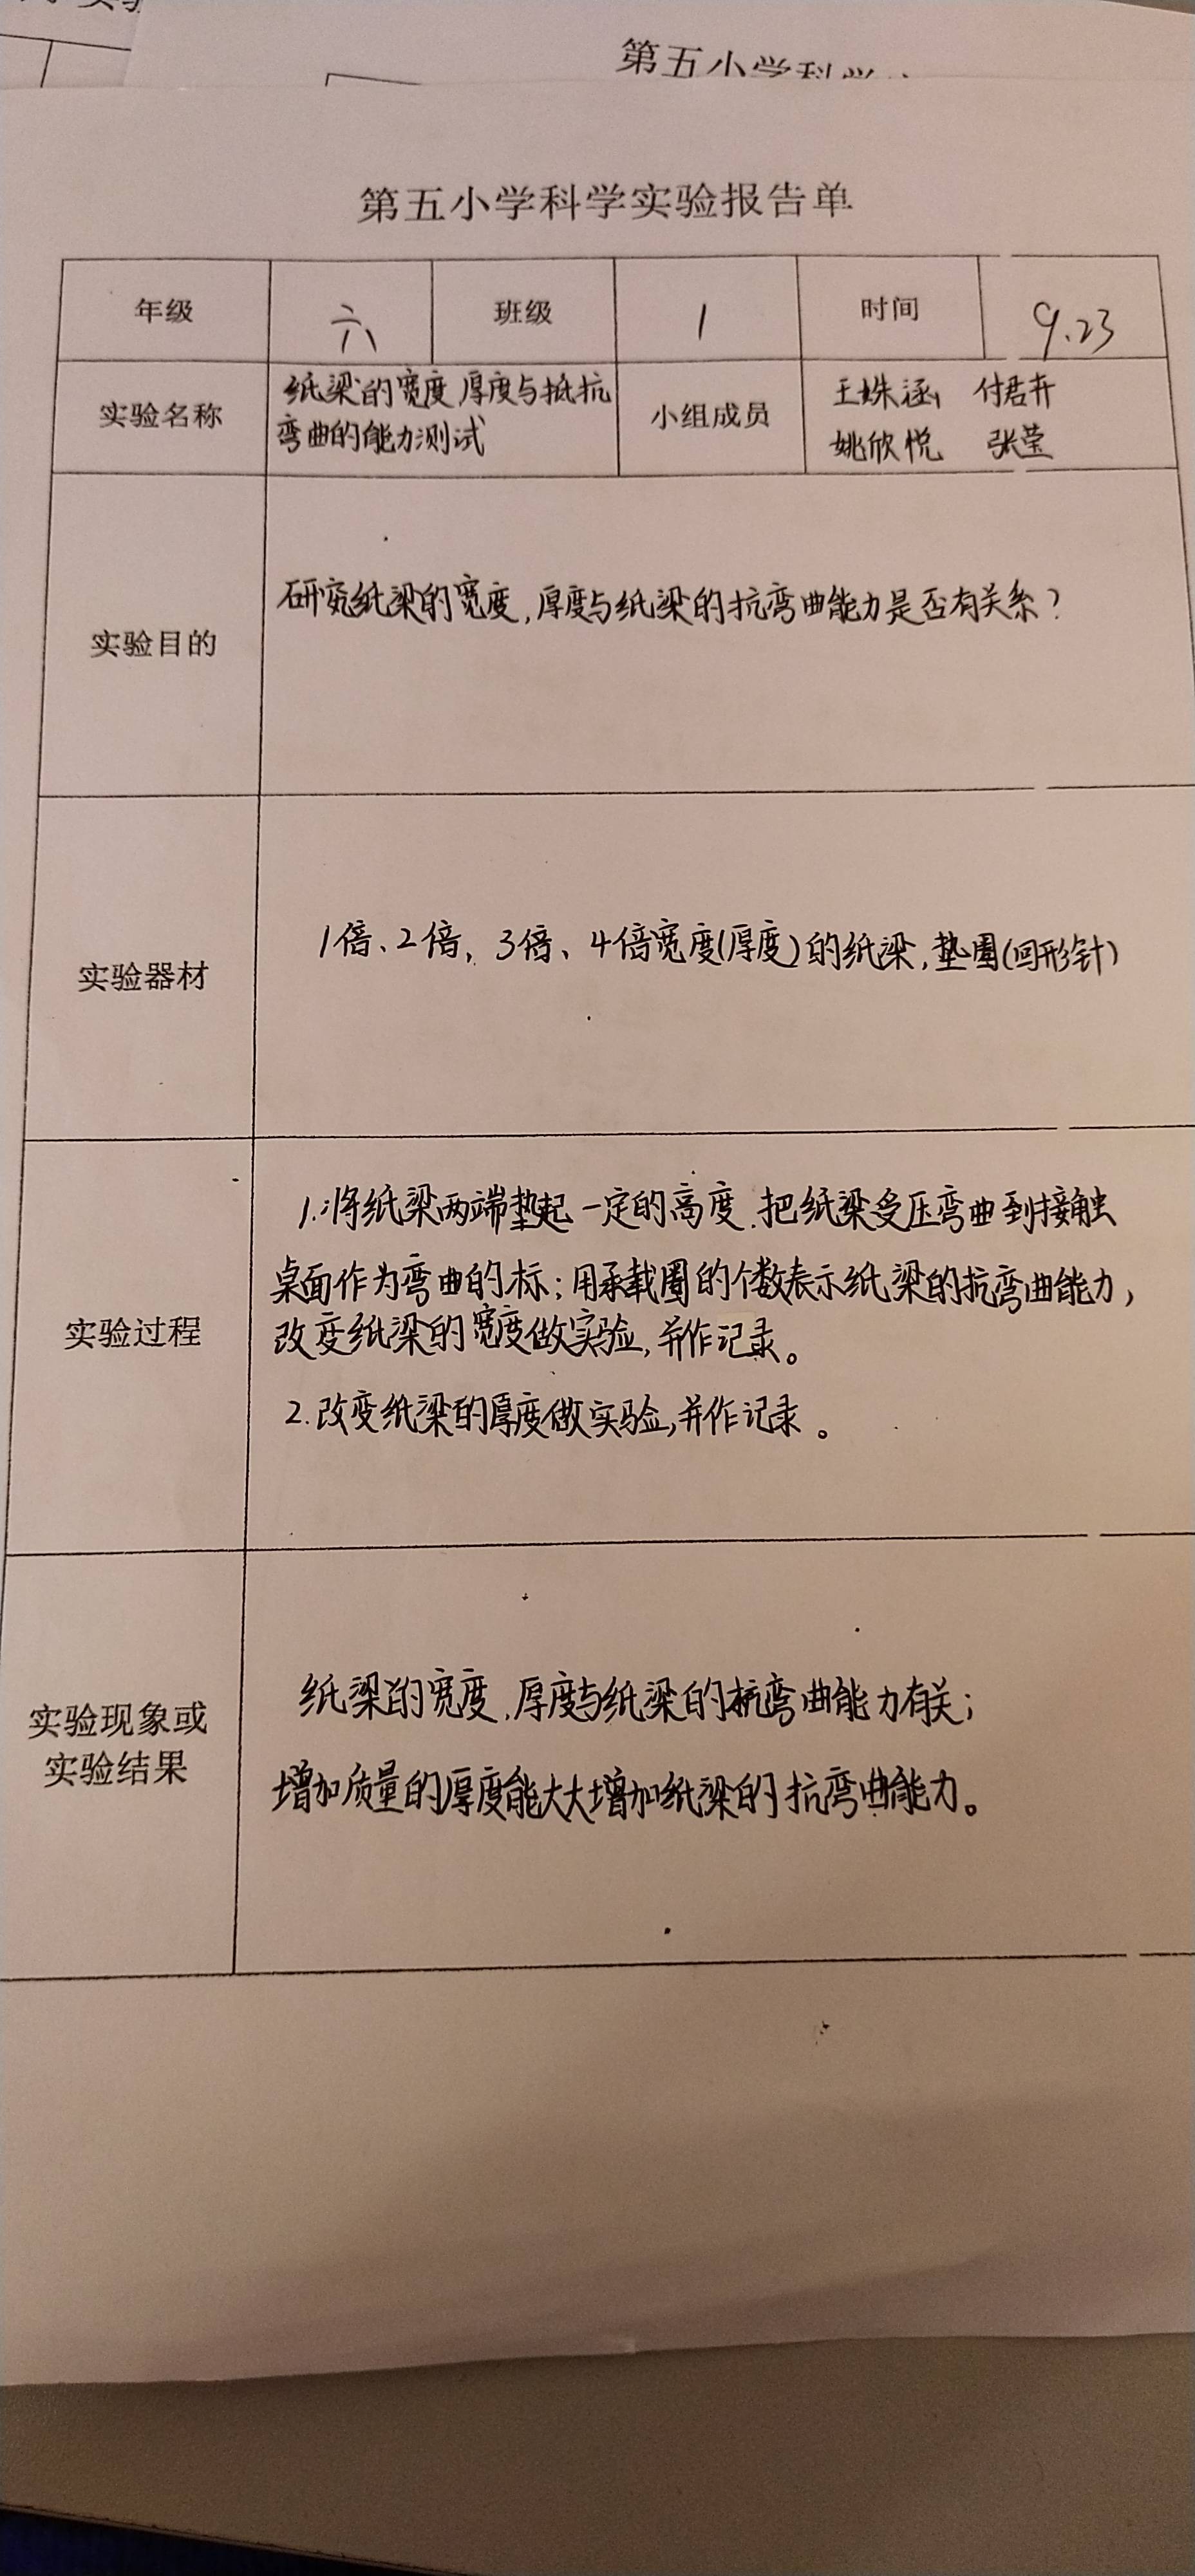 第五小学科学
第五小学科学实验报告单
年级 六 班级 1 时间 9.23
实验名称
纸梁的宽度 厚度与抵抗
弯曲的能力测试
小组成员
王姝涵 付君卉
姚欣悦 张莹
实验目的
研究纸梁的宽度,厚度与纸梁的抗弯曲能力是否有关系?
实验器材
1倍、2倍,3倍、4倍宽度(厚度)的纸梁,垫圈(回形针)
实验过程
1.将纸梁两端垫起一定的高度.把纸梁受压弯曲到接触
桌面作为弯曲的标;用承载圈的个数表示纸梁的抗弯曲能力,
改变纸梁的宽度做实验,并作记录。
2.改变纸梁的厚度做实验,并作记录。
实验现象或
实验结果
纸梁的宽度.厚度与纸梁的抗弯曲能力有关;
增加质量的厚度能大大增加纸梁的抗弯曲能力。